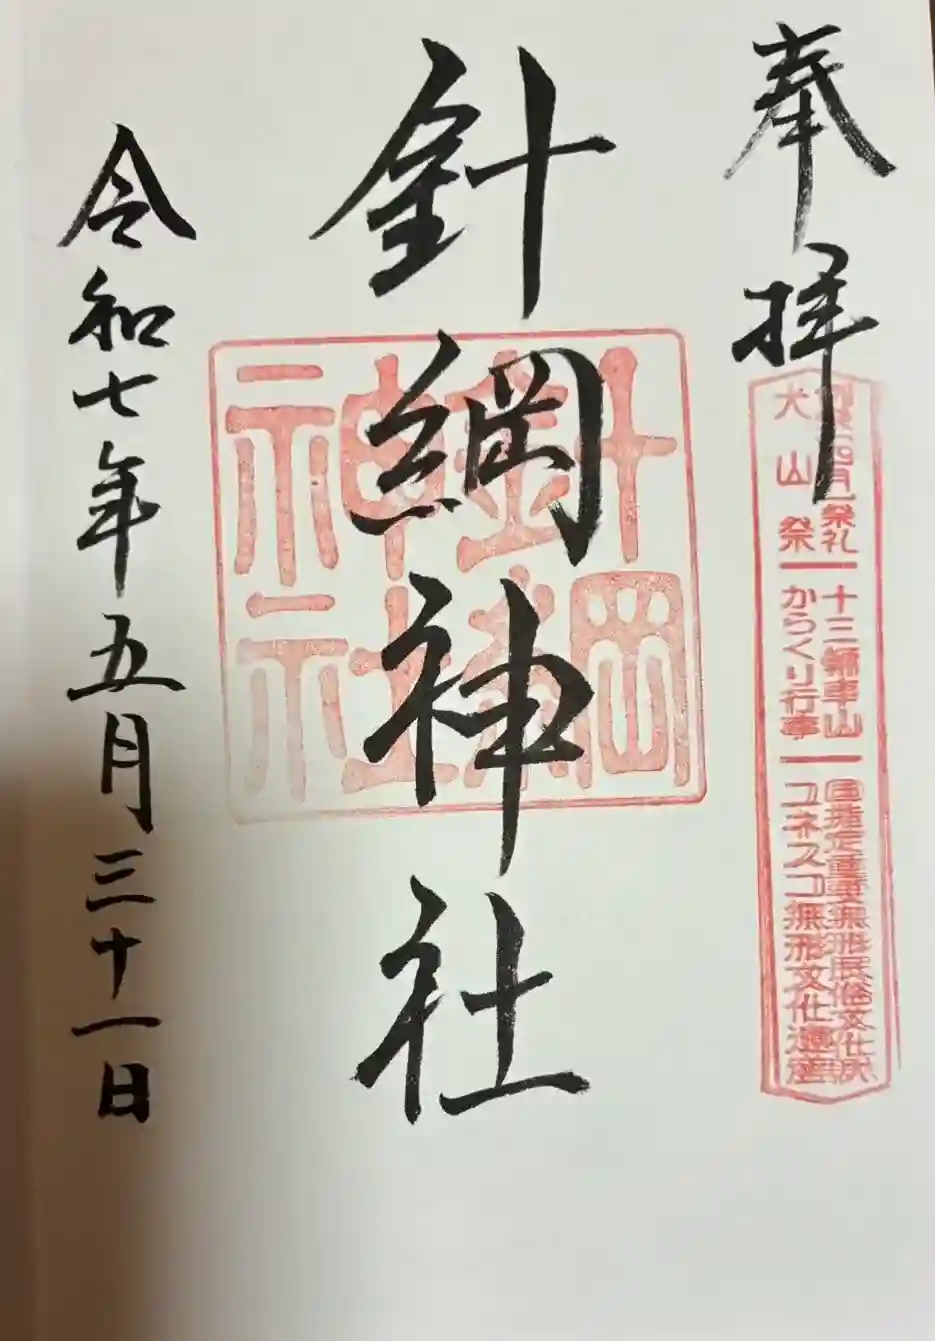 奉拝
犬山祭 からくり行事 ユネスコ無形文化遺産
祭礼 十三輌車山 国指定重要無形民俗文化財
針綱神社
針綱神社
令和七年五月三十一日